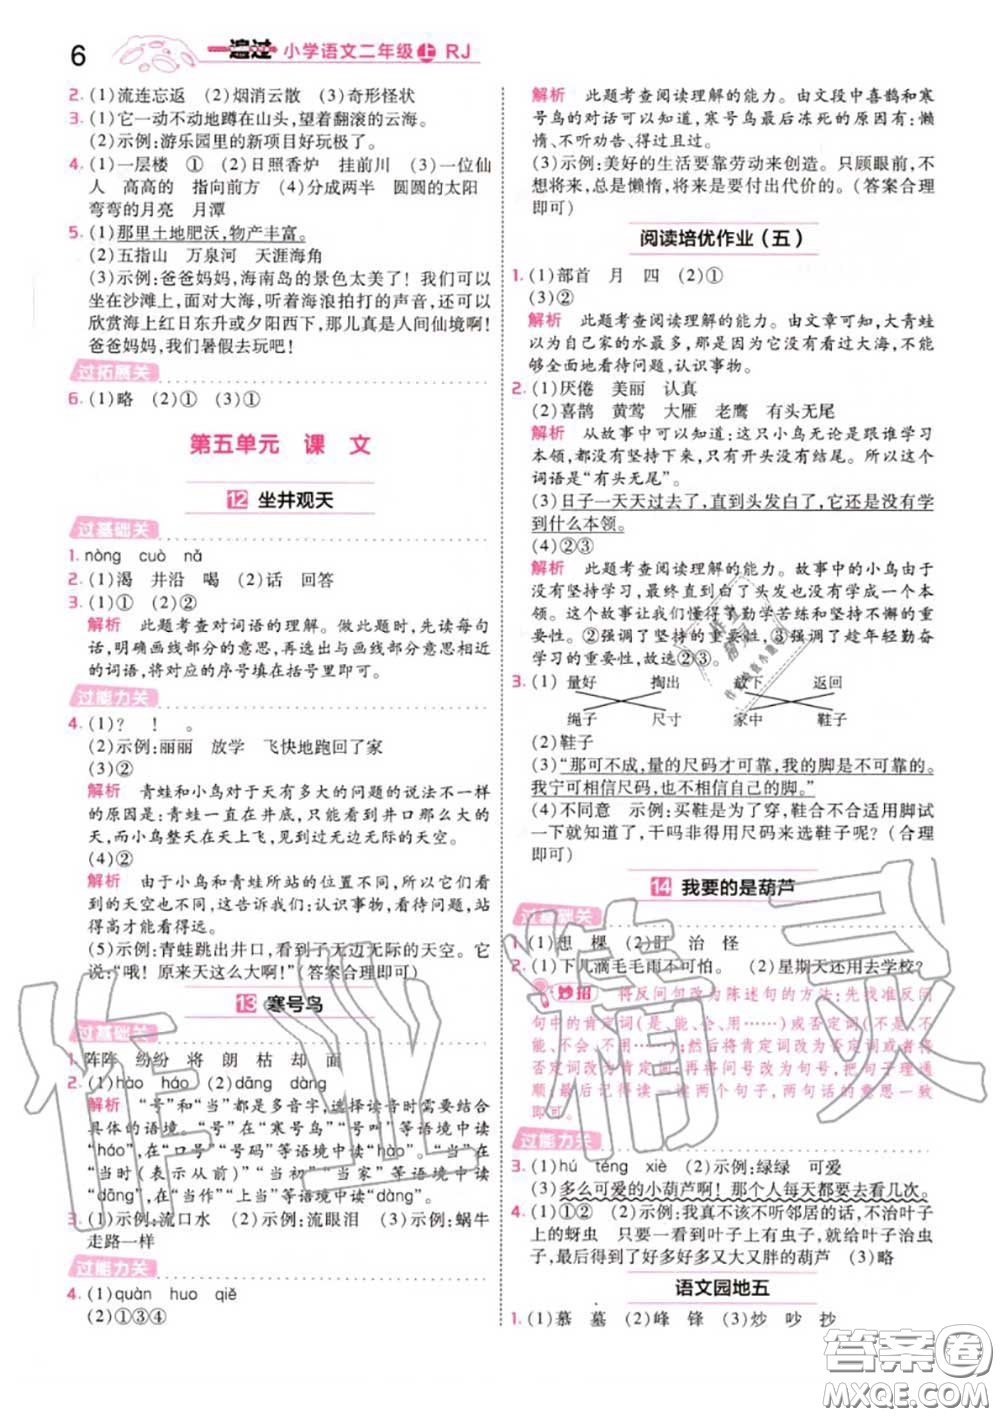 6
一遍过 小学语文二年级 上 RJ
2. (1)流连忘返 (2)烟消云散 (3)奇形怪状
3. (1)它一动不动地蹲在山头,望着翻滚的云海。
(2)示例:游乐园里的新项目好玩极了。
4. (1)一层楼 ① (2)日照香炉 挂前川 (3)一位仙
人 高高的 指向前方 (4)分成两半 圆圆的太阳
弯弯的月亮 月潭
5. (1)那里土地肥沃,物产丰富。
(2)五指山 万泉河 天涯海角
(3)示例:爸爸妈妈,海南岛的景色太美了!我们可以
坐在沙滩上,面对大海,听着海浪拍打的声音,还可以
欣赏海上红日东升或夕阳西下,那儿真是人间仙境啊!
爸爸妈妈,我们暑假去玩吧!
过拓展关
6. (1)略 (2)① (3)①
第五单元 课 文
12 坐井观天
过基础关
1. nòng cuò nǎ
2. (1)渴 井沿 喝 (2)话 回答
3. (1)① (2)②
解析 此题考查对词语的理解。做此题时,先读每句
话,明确画线部分的意思,再选出与画线部分意思相近
的词语,将对应的序号填在括号里即可。
过能力关
4. (1)? ! 。
(2)示例:丽丽 放学 飞快地跑回了家
(3)②
解析 青蛙和小鸟对于天有多大的问题的说法不一样
的原因是:青蛙一直在井底,只能看到井口那么大的
天,而小鸟整天在天上飞,见到过无边无际的天空。
(4)②
解析 由于小鸟和青蛙所站的位置不同,所以它们看
到的天空也不一样,这告诉我们:认识事物,看待问题,站
得高才能看得远。
(5)示例:青蛙跳出井口,看到了无边无际的天空。它
说:“哦!原来天这么大啊!”(答案合理即可)
13 寒号鸟
过基础关
1. 阵阵 纷纷 将 朗 枯 却 面
2. (1)hào háo (2)dāng dàng
解析 “号”和“当”都是多音字,选择读音时需要结合
具体的语境。“号”在“寒号鸟”“号叫”等语境中读
“háo”,在“口号”“号码”等语境中读“hào”。“当”在
“当时(表示从前)”“当初”“当家”等语境中读
“dāng”,在“当作”“上当”等语境中读“dàng”。
3. (1)示例:流口水 (2)示例:流眼泪 (3)示例:蜗牛
走路一样
过能力关
4. (1)quàn huo qiě
(2)①③④
解析 此题考查阅读理解的能力。由文段中喜鹊和寒
号鸟的对话可以知道,寒号鸟最后冻死的原因有:懒
惰、不听劝告、得过且过。
(3)示例:美好的生活要靠劳动来创造。只顾眼前,不
想将来,总是懒惰,将来是要付出代价的。(答案合理
即可)
阅读培优作业(五)
1. (1)部首 月 四 (2)①
(3)②
解析 此题考查阅读理解的能力。由文章可知,大青蛙
以为自己家的水最多,那是因为它没有看过大海,不能
能够全面地看待问题,认识事物。
2. (1)厌倦 美丽 认真
(2)喜鹊 黄莺 大雁 老鹰 有头无尾
解析 从故事中可以知道:这只小鸟无论是跟谁学习
本领,都没有坚持下来,只有开头没有结尾。所以这个
词语是“有头无尾”。
(3)日子一天天过去了,直到头发白了,它还是没有学
到什么本领。
(4)②③
解析 此题考查阅读理解的能力。故事中的小鸟由于
没有坚持学习,直到自己白了头发也没有学会一个本
领。这个故事让我们懂得了勤学苦练和坚持不懈的重
要性。②强调了坚持的重要性,③强调了趁年轻勤奋
学习的重要性,故选②③。
3. (1) 量好 掏出 放下 返回
绳子 尺寸 家中 鞋子
(2)鞋子
(3)“那可不成,量的尺码才可靠,我的脚是不可靠的。
我宁可相信尺码,也不相信自己的脚。”
(4)不同意 示例:买鞋是为了穿,鞋合不合适用脚试
一下就知道了,干吗非得用尺码来选鞋子呢?(合理
即可)
14 我要的是葫芦
过基础关
1. (1)想 棵 (2)盯 治 怪
2. (1)下几滴毛毛雨不可怕。 (2)星期天还用去学校?
妙招 将反问句改为陈述句的方法:先找准反问
句中的肯定词(是、能、会、用……)或否定词(不是、不
能、不会、不用……),然后将肯定词改为否定词或将
否定词改为肯定词;再将问号改为句号,把句子理通
顺,最后记得读一读两个句子,两句话的意思一致
即可。
过能力关
3. (1)hú téng xiè (2)示例:绿绿 可爱
(3)多么可爱的小葫芦啊!那个人每天都要去看几次。
4. (1)①② (2)示例:我真不该不听邻居的话,不治叶子
上的蚜虫 只要一看到叶子上有虫子,就给叶子治虫
子,最后得到了好多好多又大又胖的葫芦 (3)略
语文园地五
1. (1)慕 墓 (2)峰 锋 (3)炒 吵 抄
作业精灵
答案圈
MXQE.COM